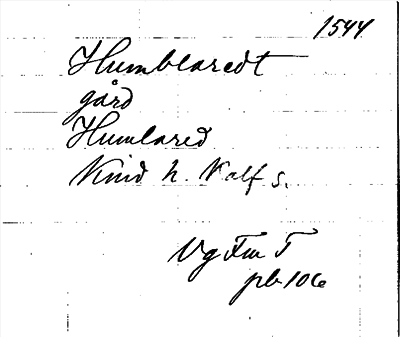 1544
Humblaredt
gård
Humlared
Kind h. Kalf s.
Vg Fm T
pb 106